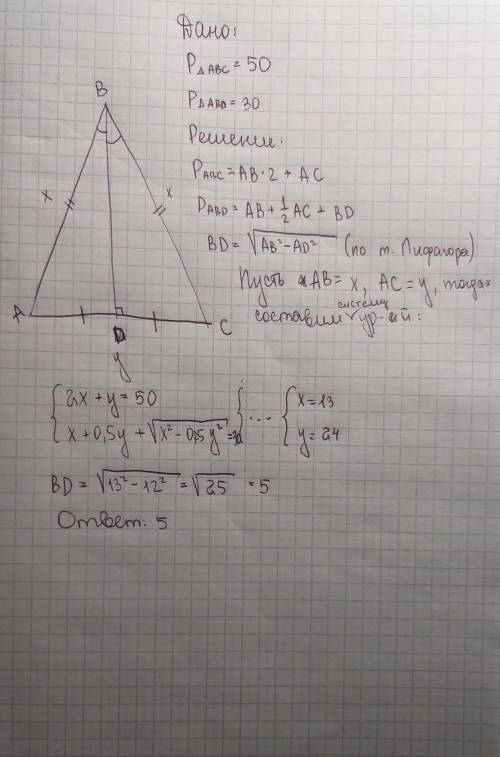 Дано:
P△ABC = 50
P△ABD = 30
Решение:
PABC = AB · 2 + AC
PABD = AB + 1/2 AC + BD
BD = √(AB² - AD²) (по т. Пифагора)
Пусть AB = x, AC = y, тогда
составим систему ур-ий:
B
x x
A D C
y
{ 2x + y = 50
{ x + 0,5y + √(x² - 0,25y²) = 30 { ... { x = 13
{ y = 24
BD = √(13² - 12²) = √25 = 5
Ответ: 5